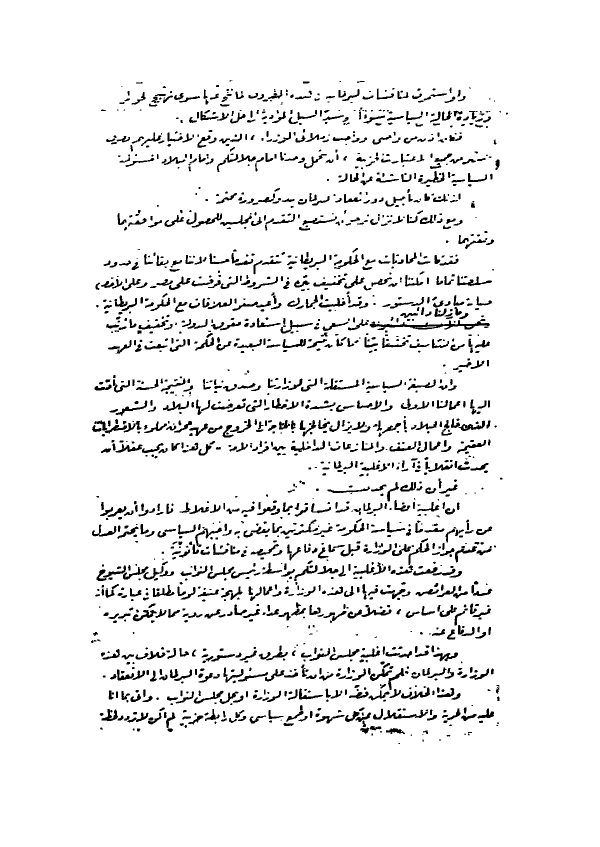 ولو استمرت المناقشات البرلمانية في هذه الظروف لما نتج عنها سوى تهييج الخواطر
وزيادة الحالة السياسية تشوها وسد السبل المؤدية إلى حل الاشكال .
فكان اذن من واجبى وواجب زملائى الوزراء ، الذين وقع الاختيار عليهم بصرف
عن جميع الاعتبارات الحزبية ، أن نتحمل وحدنا امام جلالتكم وامام البلاد المسئولية
السياسية الخطيرة الناشئة عن الحالة .
لذلك كان تأجيل دور انعقاد البرلمان يبدو كضرورة محتمة .
ومع ذلك كنا لا نزال نرجو أن نستطيع التقدم الى المجلسين للحصول على موافقتهما
وثقتهما .
فقد كانت المحادثات مع الحكومة البريطانية تتقدم تقدما حسنا لاننا مع بقائنا في حدود
سلطتنا تماما امكننا ان نحصل على تخفيف في الشروط التى فرضت على مصر وعلى الأخص
صيانة مبادئ الدستور . وقد أخليت الجمارك وأعيد صفو العلاقات مع الحكومة البريطانية .
وما زلنا دائبين
على السعى في سبيل استعادة حقوق الدولة وتخفيف ما ترتب
عليها من التكاليف تخفيفا بينا مما كان نتيجة للسياسة البعيدة عن الحكمة التى اتبعت في العهد
الاخير .
وان لصبغة السياسة المستقلة التى لوزارتنا وصدق نياتنا والنتيجة الحسنة التى أفضت
اليها اعمالنا الاولى والاحساس بشدة الاخطار التى تعرضت لها البلاد والشعور
الذى خالج البلاد أجمعها ولا يزال يخالجها بالحاجة الى الخروج من عهد مملوء بالاضطرابات
العقيمة واعمال العنف والمنازعات الداخلية بين افراد الامة - كل هذا كان يجب عقلا أن
يحدث انقلابا في آراء الاغلبية البرلمانية .
غير أن ذلك لم يحدث .
ان اغلبية أعضاء البرلمان قد انساقوا بما وقعوا فيه من الاغلاط فارادوا أن يعربوا
عن رأيهم مقدما في سياسة الحكومة غير مكترثين بما يقضى به واجبهم السياسى وما يحتم العدل
من عدم الحكم على الوزارة قبل سماع دفاعها وتمحيصه في مناقشات قانونية .
وقد رفعت هذه الأغلبية الى جلالتكم بواسطة رئيس مجلس النواب ووكيل مجلس الشيوخ
عددا من العرائض وجهت فيها الى هذه الوزارة واعمالها بلهجة عنيفة لوما مطلقا في عبارة كما أنه
غير قائم على اساس ، فضلا عن ظهورها بمظهر عداء غير صادر عن روية مما لا يمكن تبريره
او الدفاع عنه .
وبهذا قد احدثت اغلبية مجلس النواب ، بطرق غير دستورية ، حالة خلاف بين هذه
الوزارة والبرلمان فلم تتمكن الوزارة من ان تأخذ على مسئوليتها دعوة البرلمان الى الانعقاد .
وهذا الخلاف لا يمكن فضه الا باستقالة الوزارة او بحل مجلس النواب . وانى بما انا
عليه من الحرية والاستقلال عن كل شهوة او طمع سياسى وكل رابطة حزبية لم اكن لاتردد لحظة